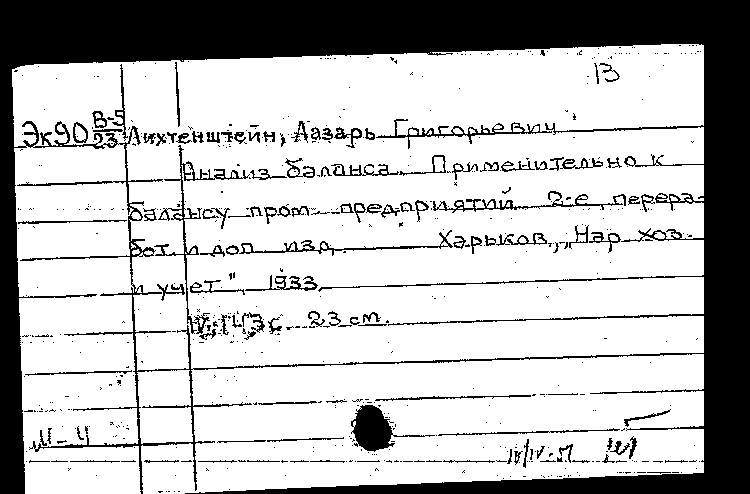 13
Эк90 В-5/23 Лихтенштейн, Лазарь Григорьевич
Анализ баланса. Применительно к
балансу пром. предприятий 2-е, перера-
бот. и доп изд. Харьков, „Нар хоз-
и учет", 1933.
IV, 143 с. 23 см.
М-4
IV/IV-51